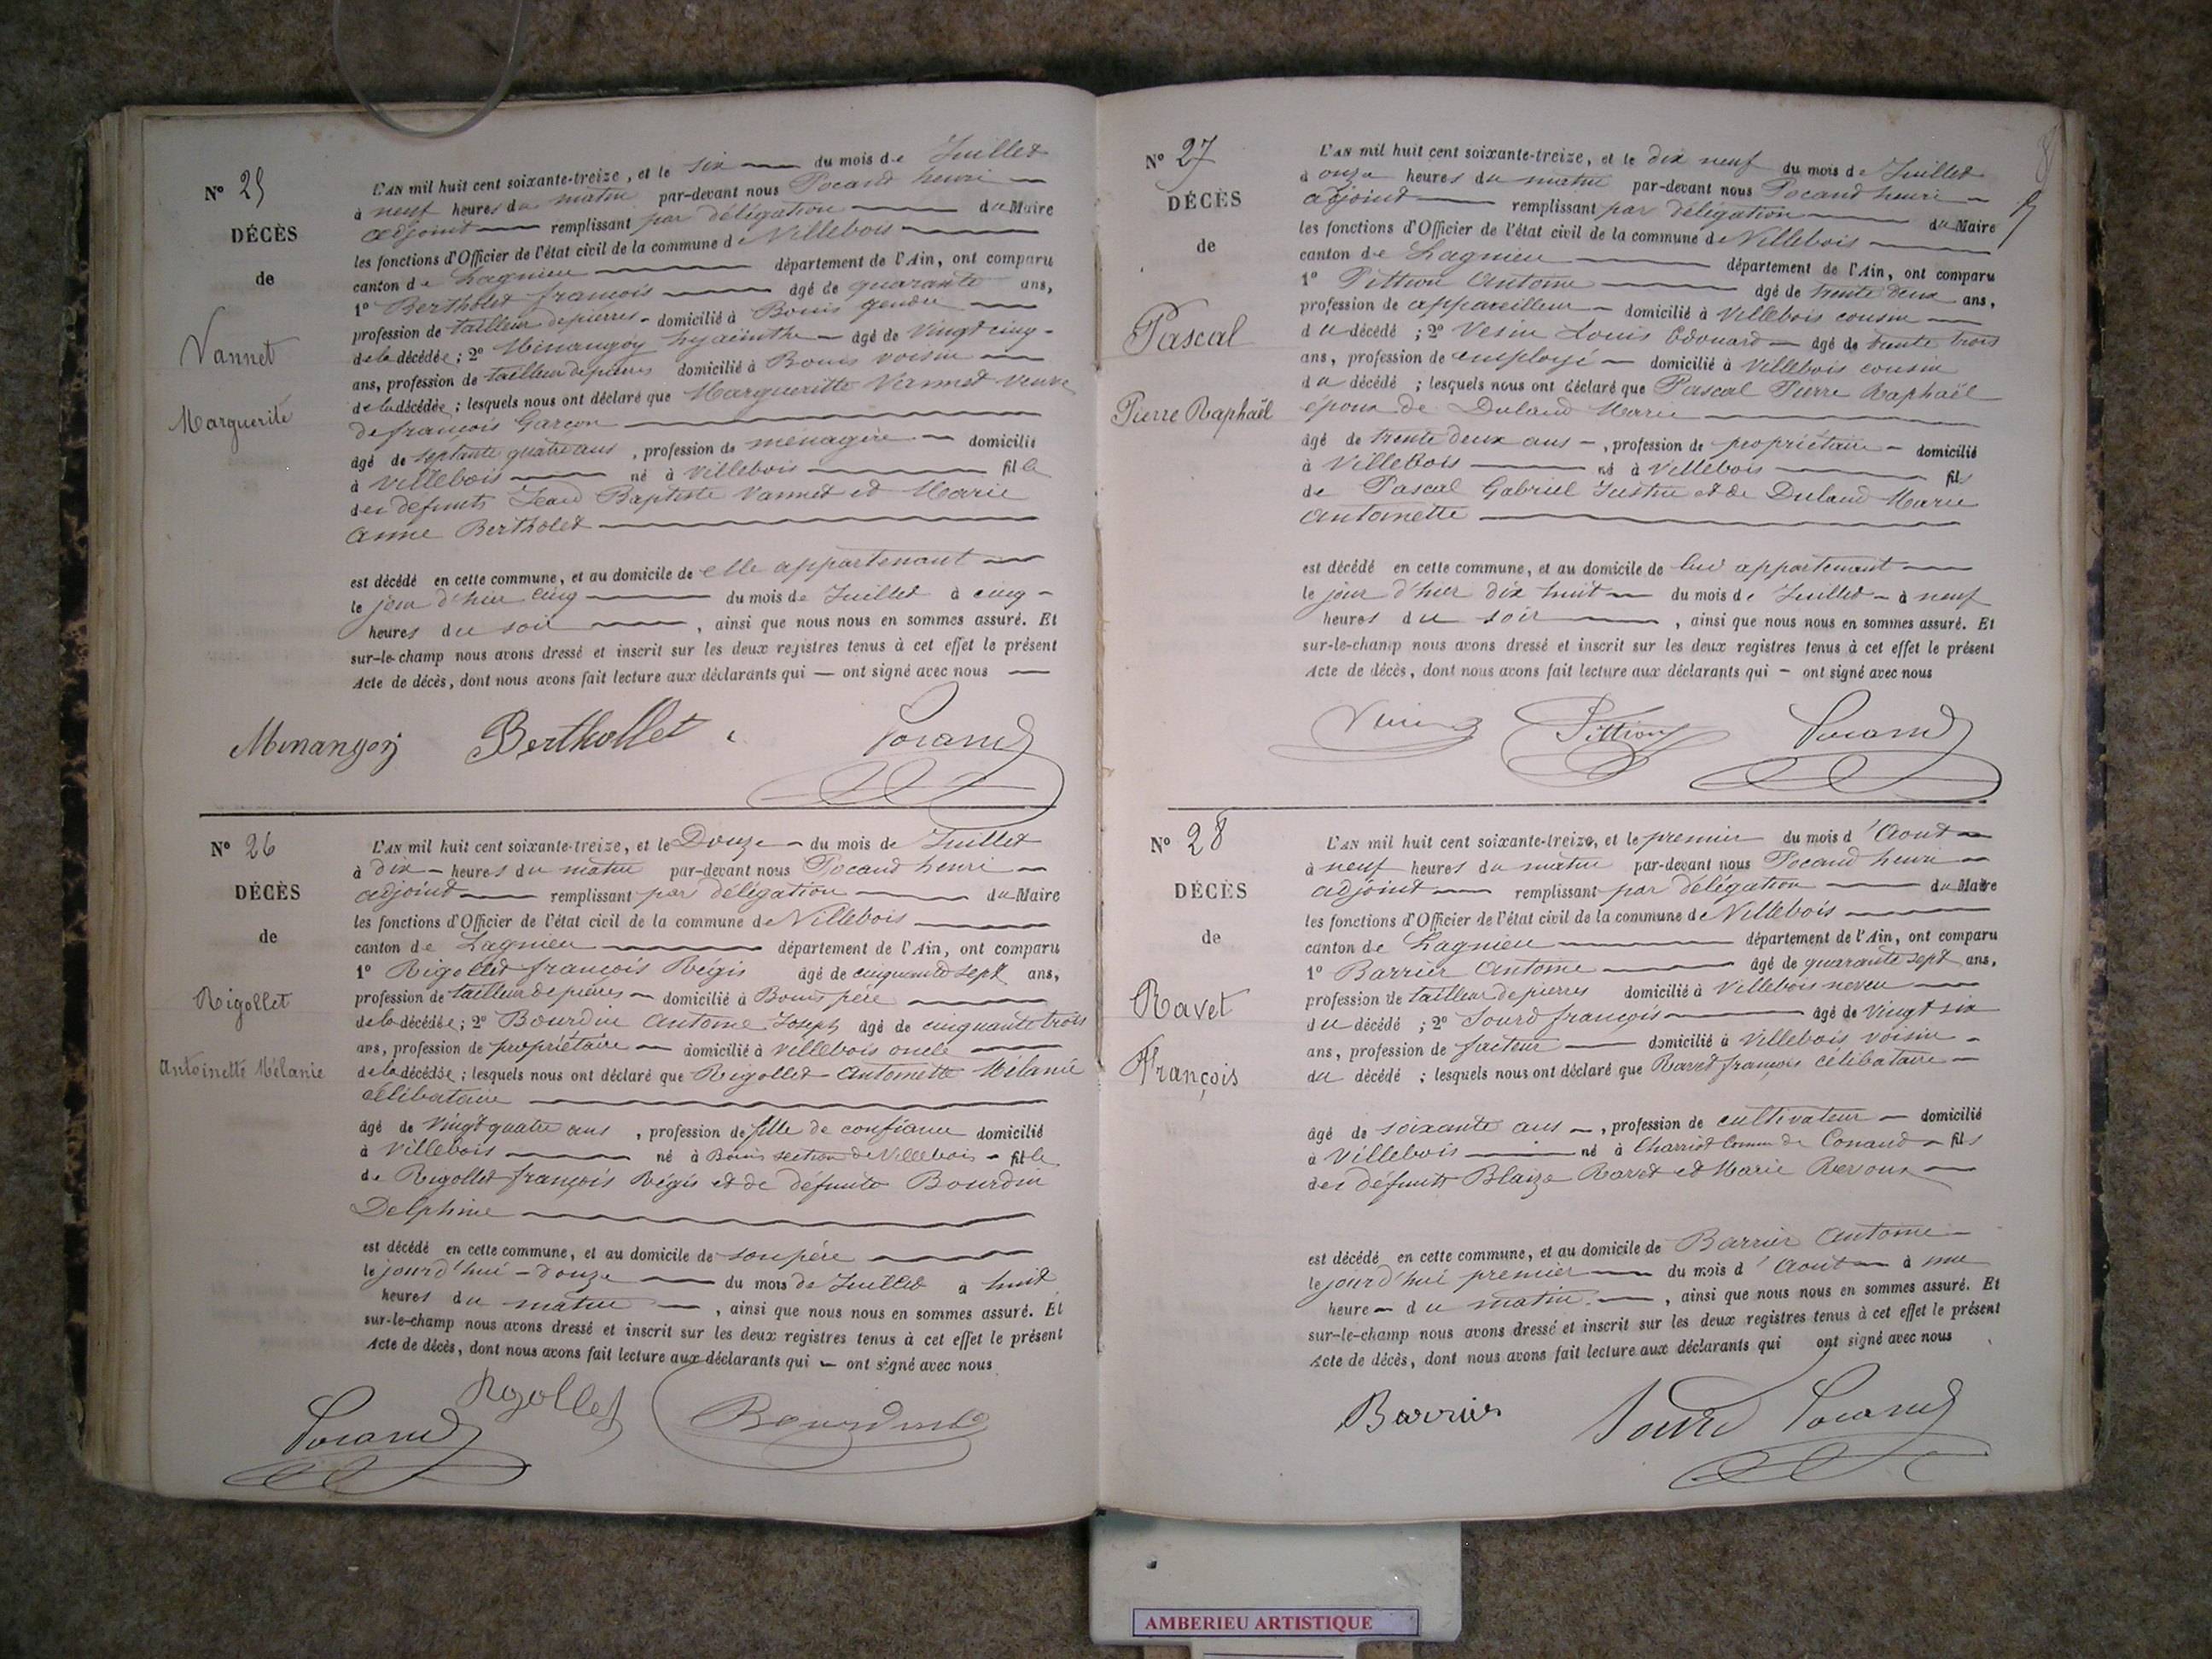 N° 25
DÉCÈS
de
Vannet
Marguerite
L'AN mil huit cent soixante-treize, et le six du mois de Juillet
à neuf heures du matin par-devant nous Pocard henri
adjoint remplissant par délégation du Maire
les fonctions d'Officier de l'état civil de la commune de Villebois
canton de Lagnieu département de l'Ain, ont comparu
1° Bertholet françois âgé de quarante ans,
profession de tailleur de pierres domicilié à Bouis gendre
de la décédée; 2° Minangoy hyacinthe âgé de vingt cinq
ans, profession de tailleur de pierres domicilié à Bouis voisin
de la décédée; lesquels nous ont déclaré que Margueritte Vannet veuve
de françois Garçon
âgé de septante quatre ans, profession de ménagère domicilié
à Villebois né à Villebois fille
des défunts Jean Baptiste Vannet et Marie
anne Bertholet
est décédé en cette commune, et au domicile de elle appartenant
le jour d'hier cinq du mois de Juillet à cinq
heures du soir, ainsi que nous nous en sommes assuré. Et
sur-le-champ nous avons dressé et inscrit sur les deux registres tenus à cet effet le présent
Acte de décès, dont nous avons fait lecture aux déclarants qui — ont signé avec nous
Minangoy Berthollet Pocard
N° 26
DÉCÈS
de
Rigollet
Antoinette Mélanie
L'AN mil huit cent soixante-treize, et le Douze du mois de Juillet
à dix heures du matin par-devant nous Pocard henri
adjoint remplissant par délégation du Maire
les fonctions d'Officier de l'état civil de la commune de Villebois
canton de Lagnieu département de l'Ain, ont comparu
1° Rigollet françois Régis âgé de cinquante sept ans,
profession de tailleur de pierres domicilié à Bouis père
de la décédée; 2° Bourdin Antoine Joseph âgé de cinquante trois
ans, profession de propriétaire domicilié à Villebois oncle
de la décédée; lesquels nous ont déclaré que Rigollet Antoinette Mélanie
célibataire
âgé de vingt quatre ans, profession de fille de confiance domicilié
à Villebois né à Bouis section de Villebois fille
de Rigollet françois Régis et de défunte Bourdin
Delphine
est décédé en cette commune, et au domicile de son père
le jourd'hui douze du mois de Juillet à huit
heures du matin, ainsi que nous nous en sommes assuré. Et
sur-le-champ nous avons dressé et inscrit sur les deux registres tenus à cet effet le présent
Acte de décès, dont nous avons fait lecture aux déclarants qui — ont signé avec nous
Pocard Rigollet
N° 27
DÉCÈS
de
Pascal
Pierre Raphaël
L'AN mil huit cent soixante-treize, et le dix neuf du mois de Juillet
à onze heures du matin par-devant nous Pocard henri
adjoint remplissant par délégation du Maire
les fonctions d'Officier de l'état civil de la commune de Villebois
canton de Lagnieu département de l'Ain, ont comparu
1° Pittion Antoine âgé de trente deux ans,
profession de appareilleur domicilié à Villebois cousin
du décédé; 2° Vesin Louis Edouard âgé de trente trois
ans, profession de employé domicilié à Villebois cousin
du décédé; lesquels nous ont déclaré que Pascal Pierre Raphaël
époux de Duland Marie
âgé de trente deux ans, profession de propriétaire domicilié
à Villebois né à Villebois fils
de Pascal Gabriel Justin et de Duland Marie
Antoinette
est décédé en cette commune, et au domicile de lui appartenant
le jour d'hier dix huit du mois de Juillet à neuf
heures du soir, ainsi que nous nous en sommes assuré. Et
sur-le-champ nous avons dressé et inscrit sur les deux registres tenus à cet effet le présent
Acte de décès, dont nous avons fait lecture aux déclarants qui — ont signé avec nous
Vesin Pittion Pocard
N° 28
DÉCÈS
de
Ravet
François
L'AN mil huit cent soixante-treize, et le premier du mois d'Aout
à neuf heures du matin par-devant nous Pocard henri
adjoint remplissant par délégation du Maire
les fonctions d'Officier de l'état civil de la commune de Villebois
canton de Lagnieu département de l'Ain, ont comparu
1° Barrier Antoine âgé de quarante sept ans,
profession de tailleur de pierres domicilié à Villebois neveu
du décédé; 2° Sourd françois âgé de vingt six
ans, profession de facteur domicilié à Villebois voisin
du décédé; lesquels nous ont déclaré que Ravet françois célibataire
âgé de soixante ans, profession de cultivateur domicilié
à Villebois né à Charriot Comm de Conand fils
des défunts Blaize Ravet et Marie Revoux
est décédé en cette commune, et au domicile de Barrier Antoine
le jourd'hui premier du mois d'Aout à une
heure du matin, ainsi que nous nous en sommes assuré. Et
sur-le-champ nous avons dressé et inscrit sur les deux registres tenus à cet effet le présent
Acte de décès, dont nous avons fait lecture aux déclarants qui ont signé avec nous
Barrier Sourd Pocard
AMBERIEU ARTISTIQUE